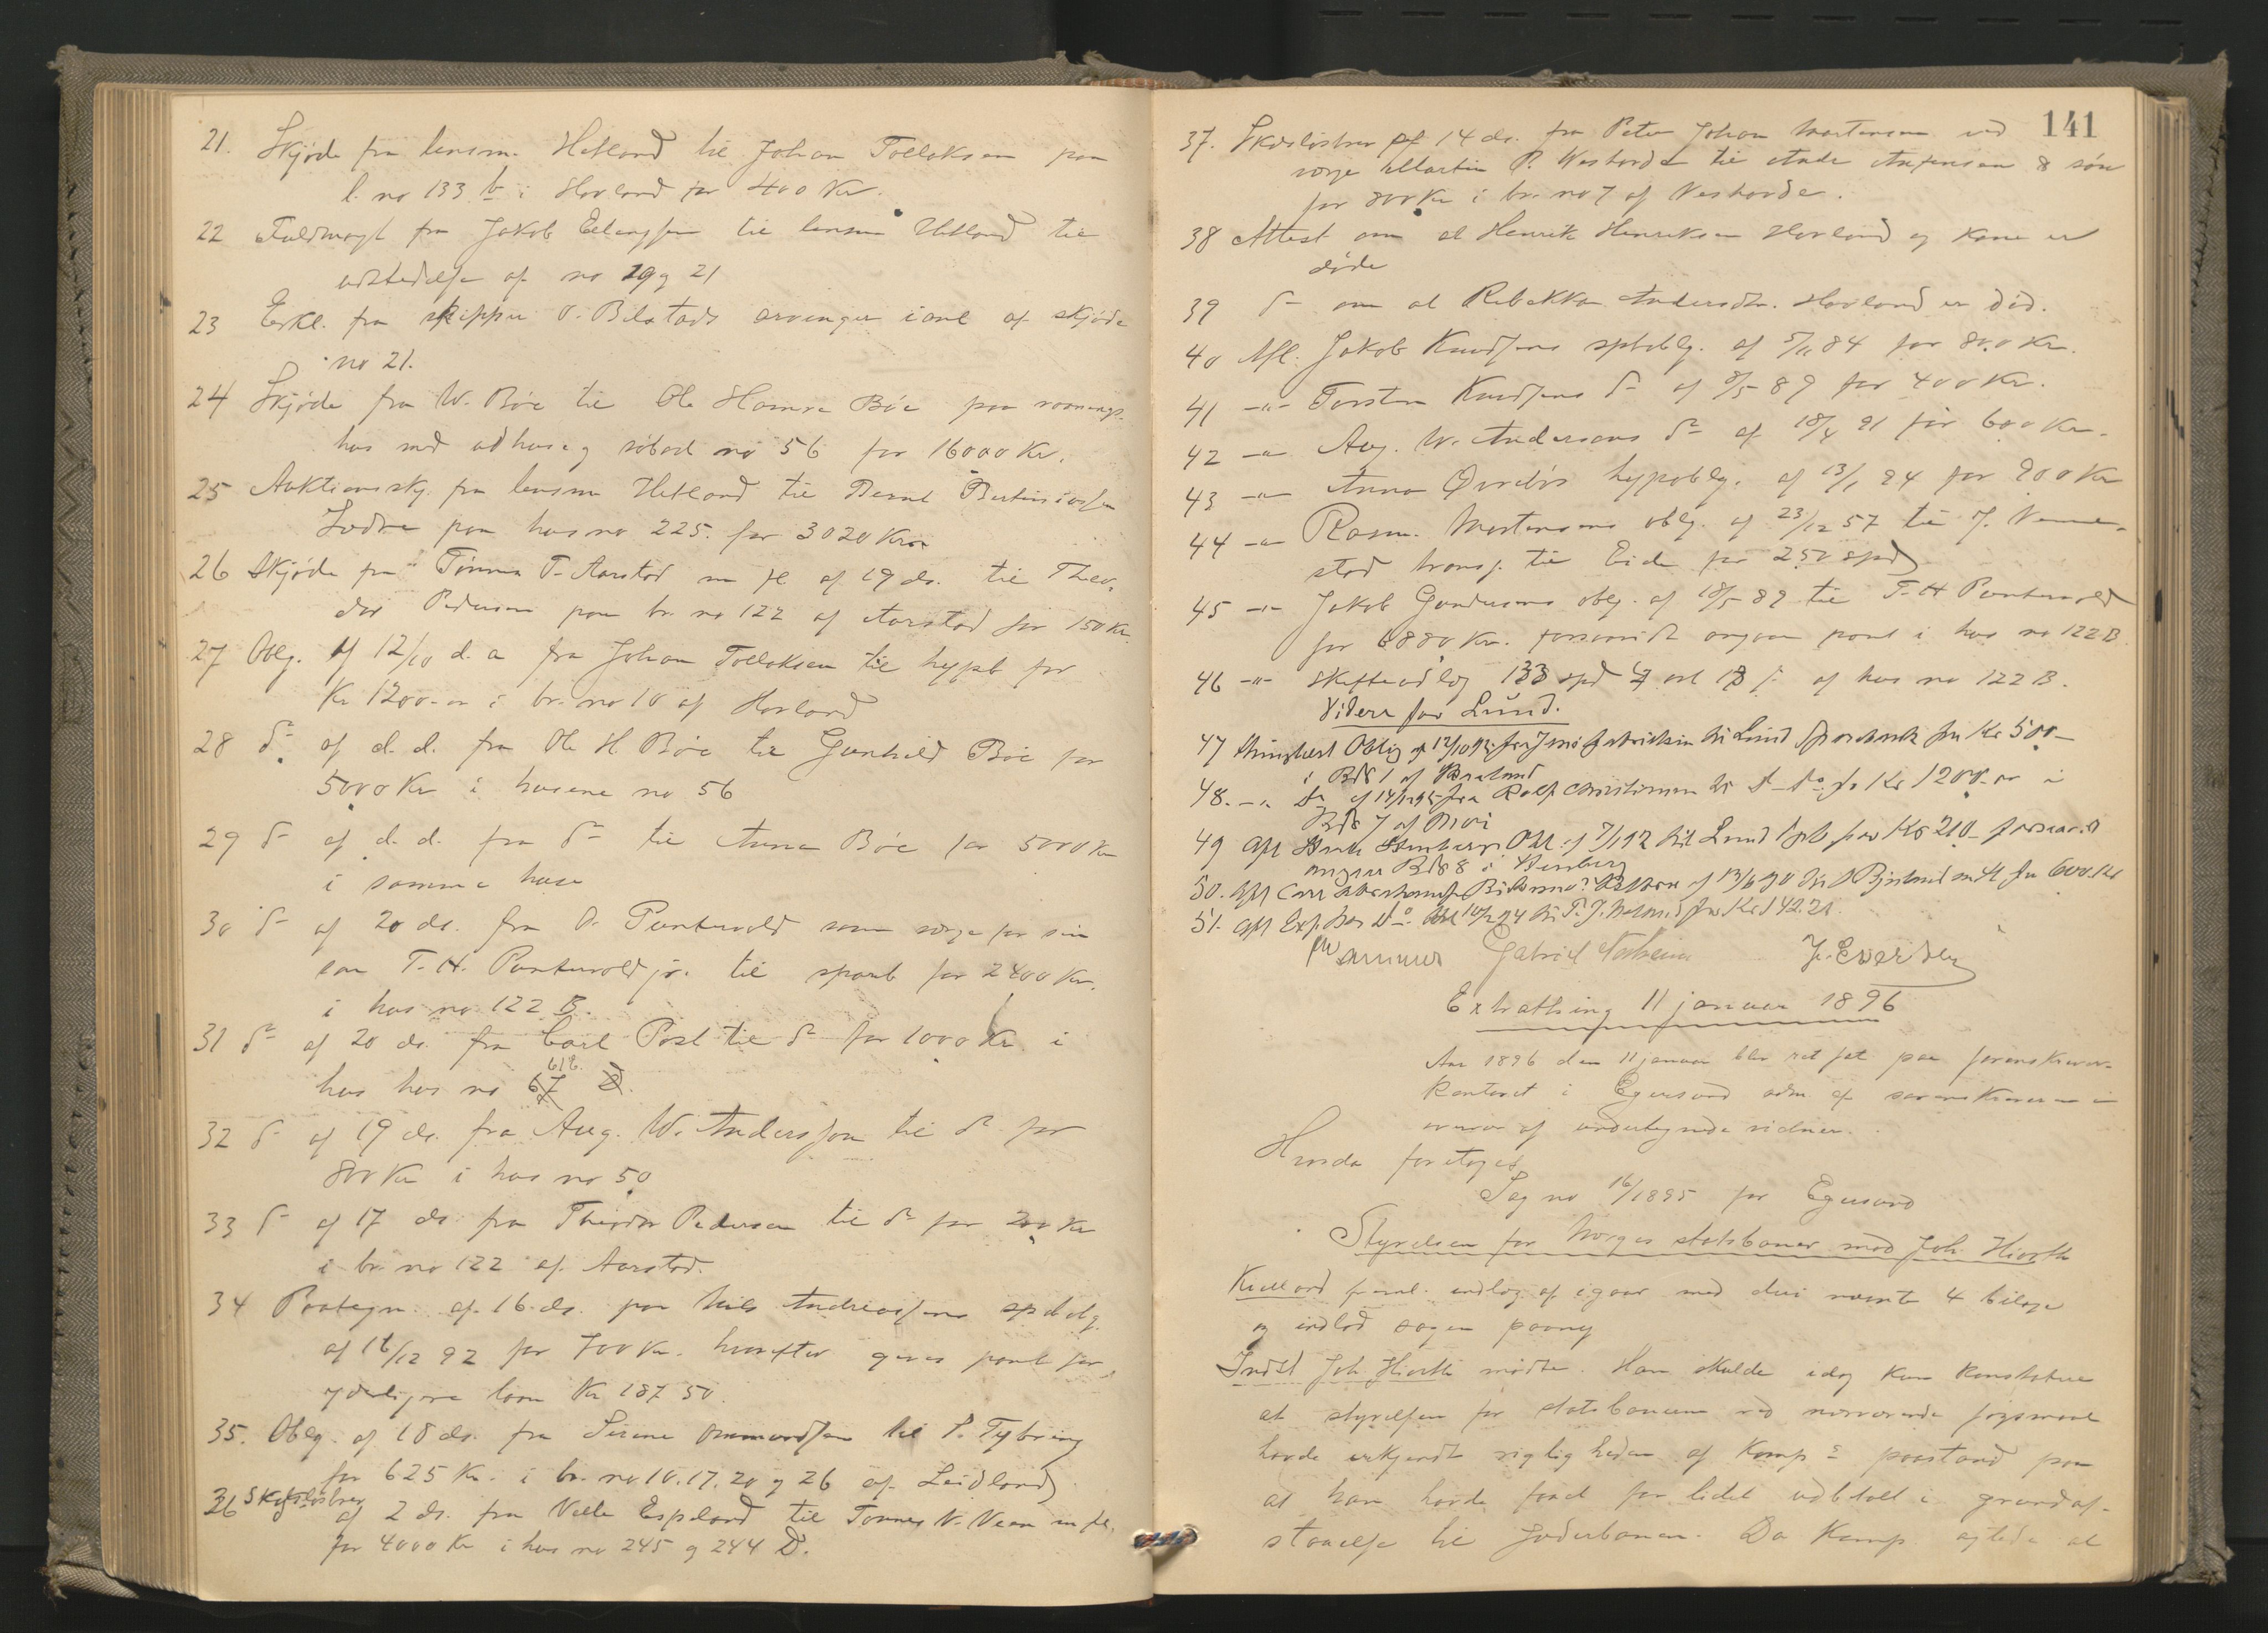 21. Skjøde fra lensm. Hetland til Johan Tollaksen paa
l. no 133 b i Hovland for 400 Kr.
22 Fuldmagt fra Jakob Elengsen til lensm Hetland til
udstedelse af no 19 og 21
23 Erkl. fra skipper O. Bilstads arvinger i anl af skjøde
no 21.
24 Skjøde fra W. Bøe til Ole Hamre Bøe paa vaanings-
hus med udhus og søbod no 56 for 16000 Kr.
25 Auktionsskj. fra lensm Hetland til Bernt Bertiniusen
Jødre paa hus no 225. for 3020 Kr
26 Skjøde fra Tønnes T. Aarstad m fl af 19 ds. til Theo-
dor Pedersen paa br. no 122 af Aarstad for 150 Kr.
27 Oblg. af 12/10 d. a fra Johan Tollaksen til hypb for
Kr 1200.00 i br. no 10 af Hovland
28 do af d. d. fra Ole H Bøe til Gunhild Bøe for
5000 Kr i husene no 56
29 do af d. d. fra do til Anna Bøe for 5000 Kr
i samme huse
30 do af 20 ds. fra O. Puntervold som verge for sin
søn T. H. Puntervold jr. til sparb for 2400 Kr.
i hus no 122 B.
31 do af 20 ds. fra Carl Post til do for 1000 Kr i
hus hus no 67 D. 61 B.
32 do af 19 ds. fra Aug. W. Anderssen til do for
800 Kr i hus no 50
33 do af 17 ds fra Theodor Pedersen til do for 200 Kr
i br. no 122 af Aarstad.
34 Paategn. af 16 ds. paa Nils Andreassens spd oblg.
af 16/12 92 for 700 Kr. hvorefter gives pant for
yderligere laan Kr 187 50.
35. Oblg. af 18 ds. fra Serine Ommundsen til S. Tybring
for 625 Kr. i br. no 10. 17. 20 og 26 af Leidland
36 Skadesløsbrev af 2 ds. fra Velle Espeland til Tønnes N. Veen m fl.
for 4000 Kr i hus no 245 og 244 D.
141
37. Skadesløsbrev af 14 ds. fra Peter Johan Mortensen ved
verge Martin P. Veshovde til Anfensen & søn
for 800 Kr i br. no 7 af Veshovde.
38 Attest om at Henrik Henriksen Hovland og kone er
døde
39 do om at Rebekka Andersdtr. Hovland er død.
40 Afl. Jakob Knudsens spboblg. af 5/11 84 for 800 Kr.
41 -"- Torsten Knudsens do af 8/5 89 for 400 Kr.
42 -"- Aug. W. Andersens do af 18/4 91 for 600 Kr.
43 -"- Anna Øvrebøs hypoblg. af 13/1 94 for 900 Kr
44 -"- Rasm. Mortensens oblg. af 23/12 57 til J.
stad transp. til Eide for 250 spd
45 -"- Jakob Gundersens oblg. af 18/5 89 til T. H Puntervold
for 6880 Kr. forsaavidt angaar pant i hus no 122 B.
46 -"- Skifteudlæg 133 spd 4 ort 18 s. af hus no 122 B.
Videre for Lund.
47 Thinglæst Oblig af 12/10 95 fra Jens Gabrielsen til Lund Sparebank for Kr 500 –
i B No 1 af
48. -"- Do af 14/12 95 fra Rolf Christensen til do for Kr 1200.00 i
B No 7 af Moi
49 Afl Obl. af 7/1 92 til Lund Spb for Kr 210 – forsaavidt
angaar B No 8 i Steinberg
50. Afl Carl af 13/6 90 for 600. Kr
51. Afl Obl 10/2 94 til T. J. for Kr 142.21.
Gabriel Torheim
Extrathing 11 januar 1896
Aar 1896 den 11 januar blev ret sat paa sorenskriver-
kontoret i Egersund adm af sorenskriveren i
overvær af undertegnede vidner.
Hvorda foretoges
Sag no 16/1895 for Egersund
Styrelsen for Norges statsbaner mod Joh. Hiorth
Kielland freml. indlæg af igaar med deri nævnte 4 bilage
og indlod sagen paany
Indst Joh. Hiorth mødte. Han skulde idag kun konstatere
at styrelsen for statsbanerne ved nærværende søgsmaal
havde erkjendt rigtigheden af Komps paastand paa
at han havde faaet for lidet udbetalt i grundaf-
staaelse til Jæderbanen. Da Komp agtede at